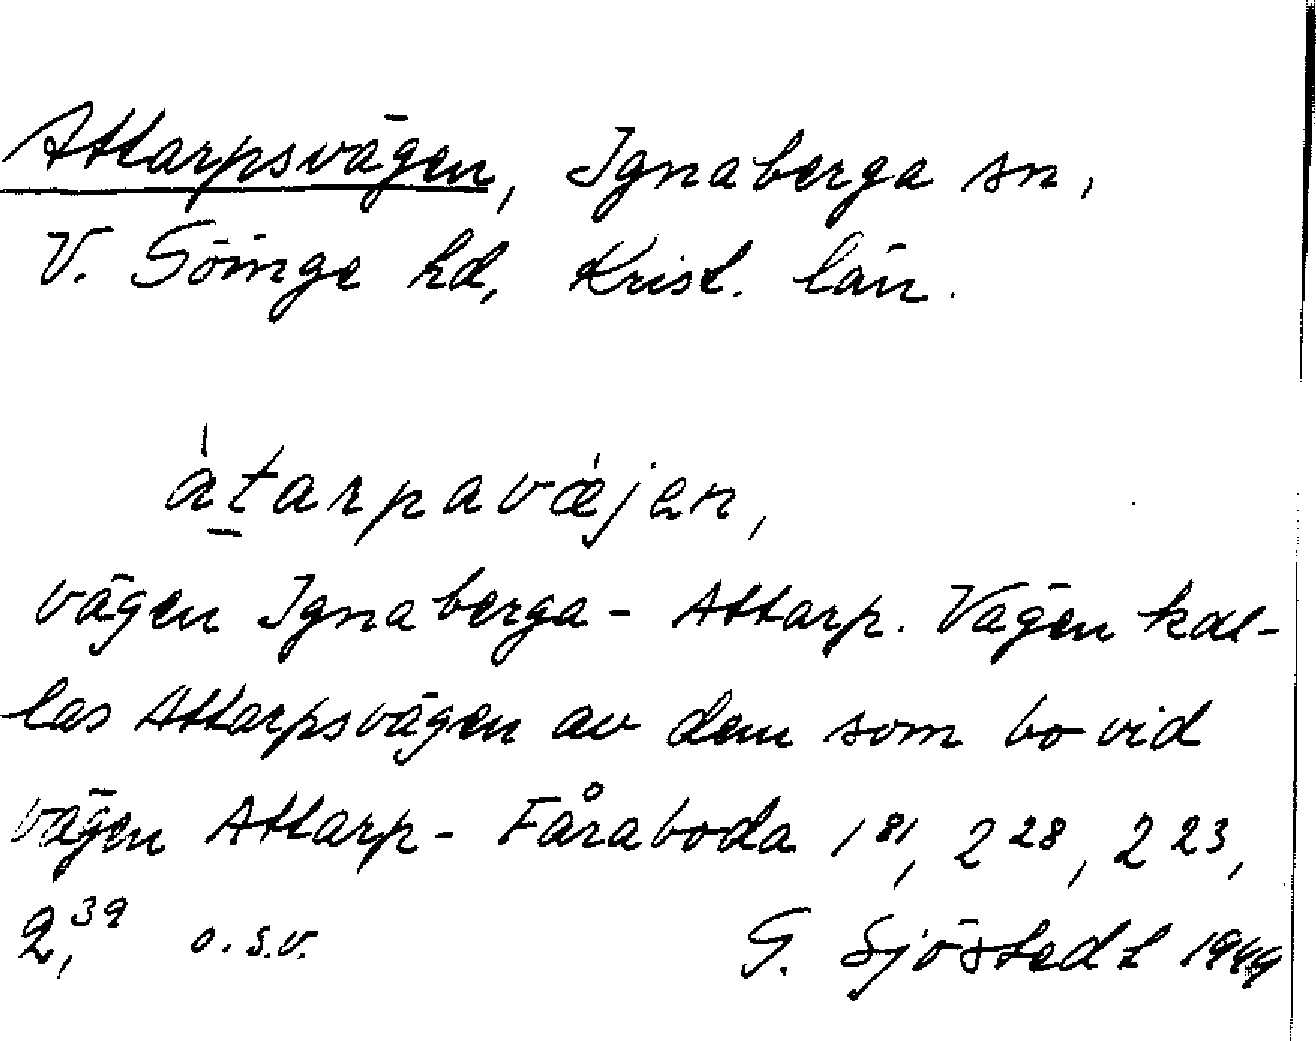 Attarpsvägen, Ignaberga sn,
V. Göinge hd, Krist. län.
àtarpavæjen,
vägen Ignaberga - Attarp. Vägen kal-
las Attarpsvägen av dem som bo vid
vägen Attarp - Fåraboda 1⁸¹, 2²⁸, 2²³,
2,³⁹ o.s.v. G. Sjöstedt 1949